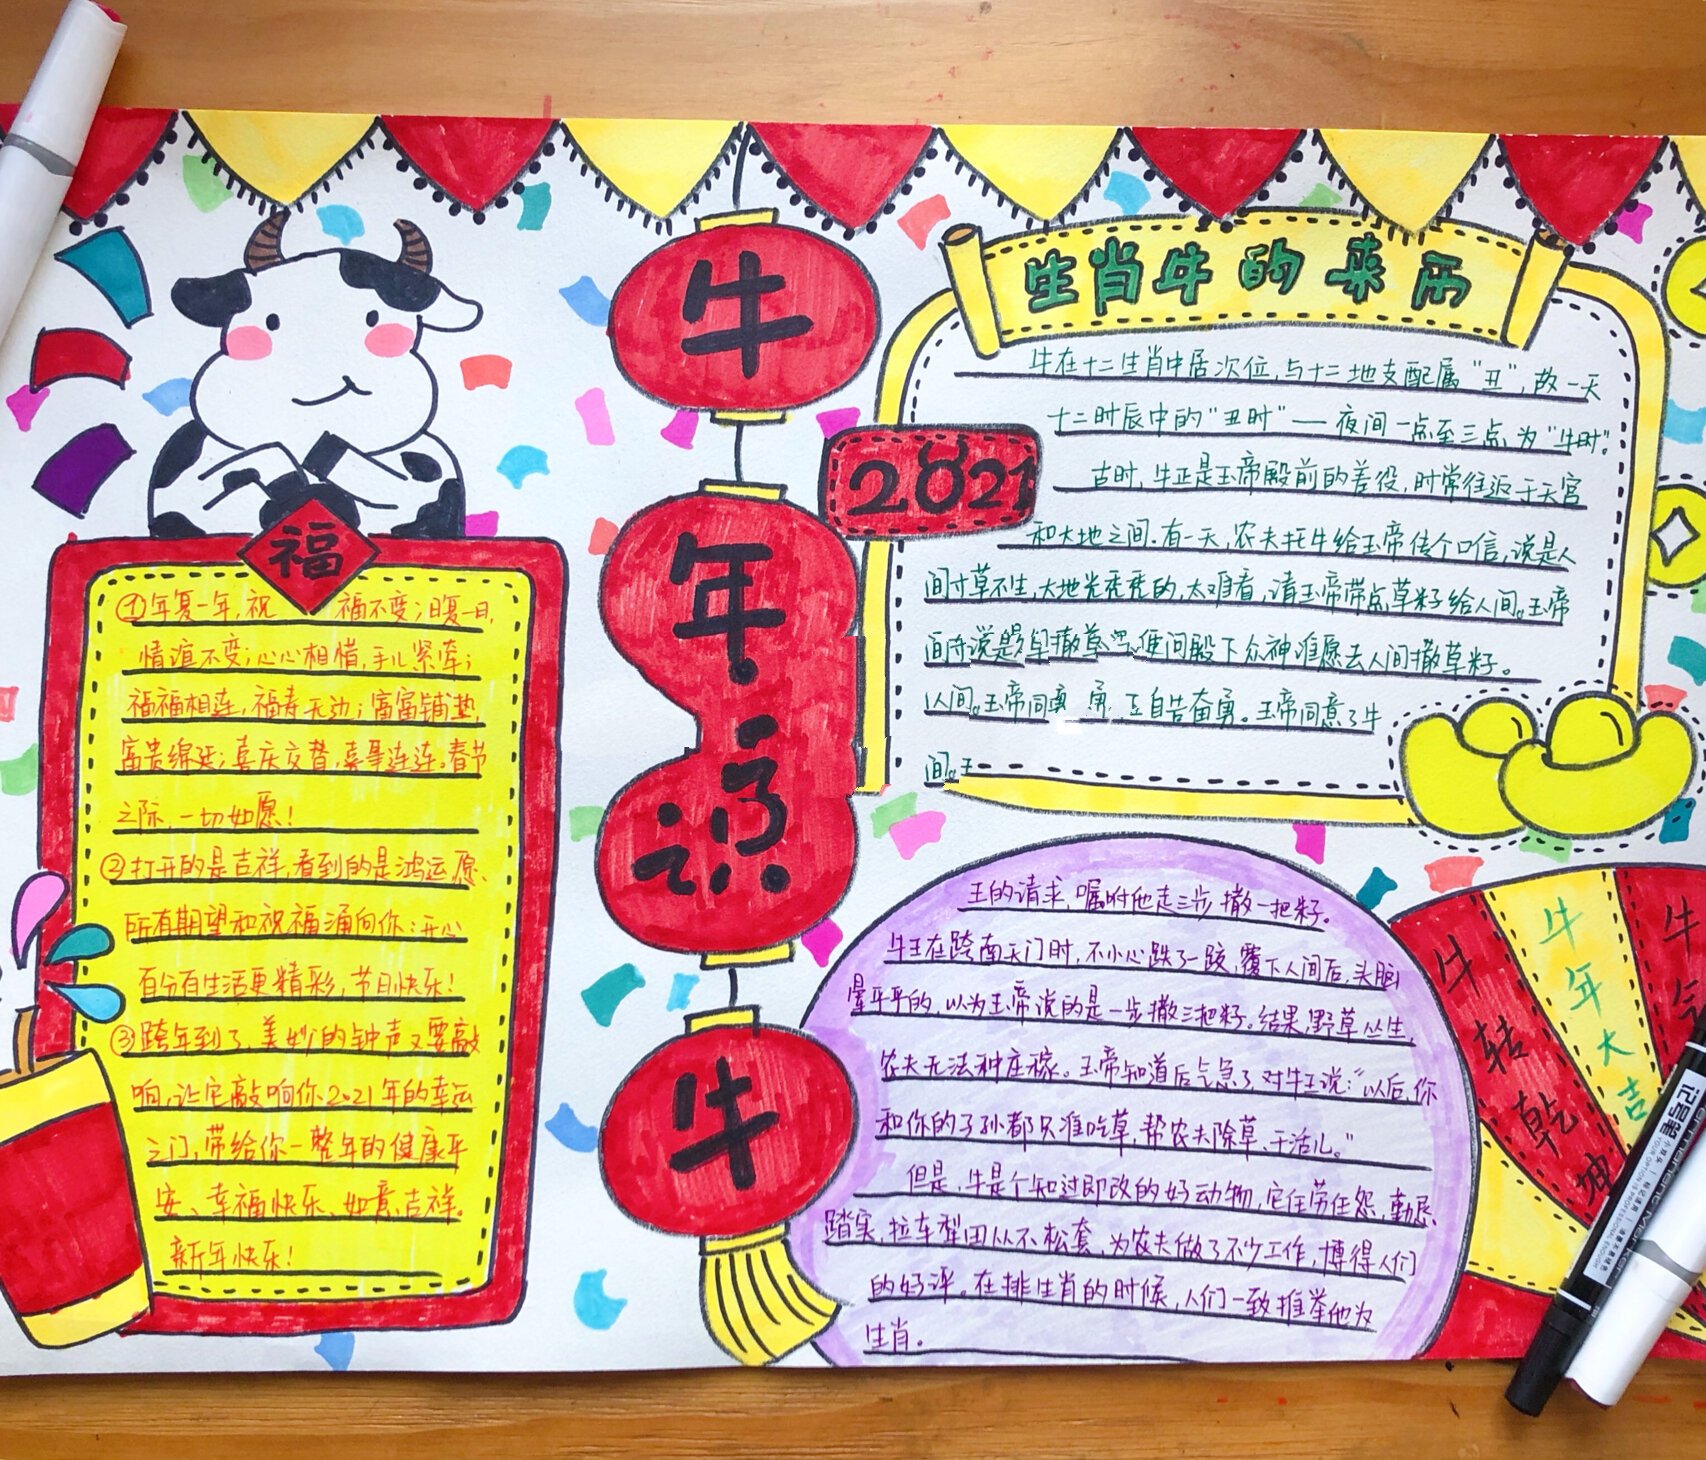 牛
年
识
牛
2021
福
①年复一年,祝 福不变;日复一日,
情谊不变;心心相惜,手儿紧牵;
福福相连,福寿无边;富富铺垫,
富贵绵延;喜庆交替,喜事连连。春节
之际,一切如愿!
②打开的是吉祥,看到的是鸿运,愿、
所有期望和祝福涌向你:开心
百分有生活更精彩,节日快乐!
③跨年到了,美妙的钟声又要敲
响,让它敲响你2021年的幸运
之门,带给你一整年的健康平
安、幸福快乐、如意吉祥。
新年快乐!
生肖牛的来历
牛在十二生肖中居次位,与十二地支配属“丑”,故一天
十二时辰中的“丑时”——夜间一点至三点为“牛时”。
古时,牛正是玉帝殿前的差役,时常往返于天宫
和大地之间.有一天,农夫托牛给玉帝传个口信,说是人
间寸草不生,大地光秃秃的,太难看,请玉帝带点草籽给人间。玉帝
间 说是 撒草 便问殿下众神谁愿去人间撒草籽。
人间。玉帝同 勇 自告奋勇。玉帝同意了牛
间。
王的请求,嘱咐他走三步撒一把籽。
牛王在跨南天门时,不小心跌了一跤,覆下人间后,头脑
晕乎乎的,以为玉帝说的是一步撒三把籽。结果,野草丛生,
农夫无法种庄稼。玉帝知道后气急了,对牛王说:“以后,你
和你的子孙都只准吃草,帮农夫除草、干活儿。”
但是,牛是个知过即改的好动物,它任劳任怨,勤恳、
踏实,拉车犁田从不松套,为农夫做了不少工作,博得人们
的好评。在排生肖的时候,人们一致推举他为
生肖。
牛转乾坤
牛年大吉
牛气
记号笔
小双头
YOUR OPTION IS PROFESSIONAL ENOUGH